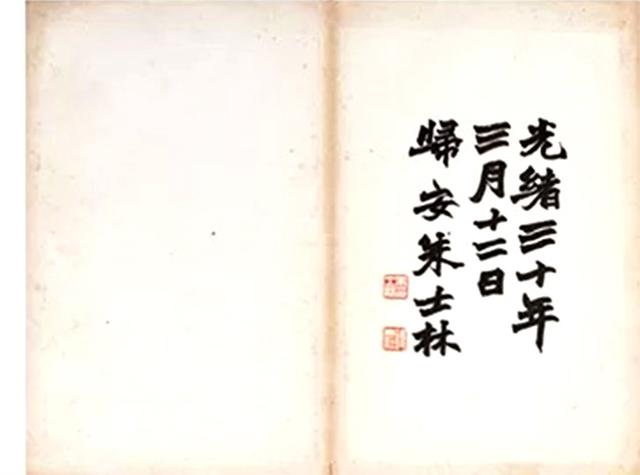 光緒三十年
三月十二日
歸安朱士林